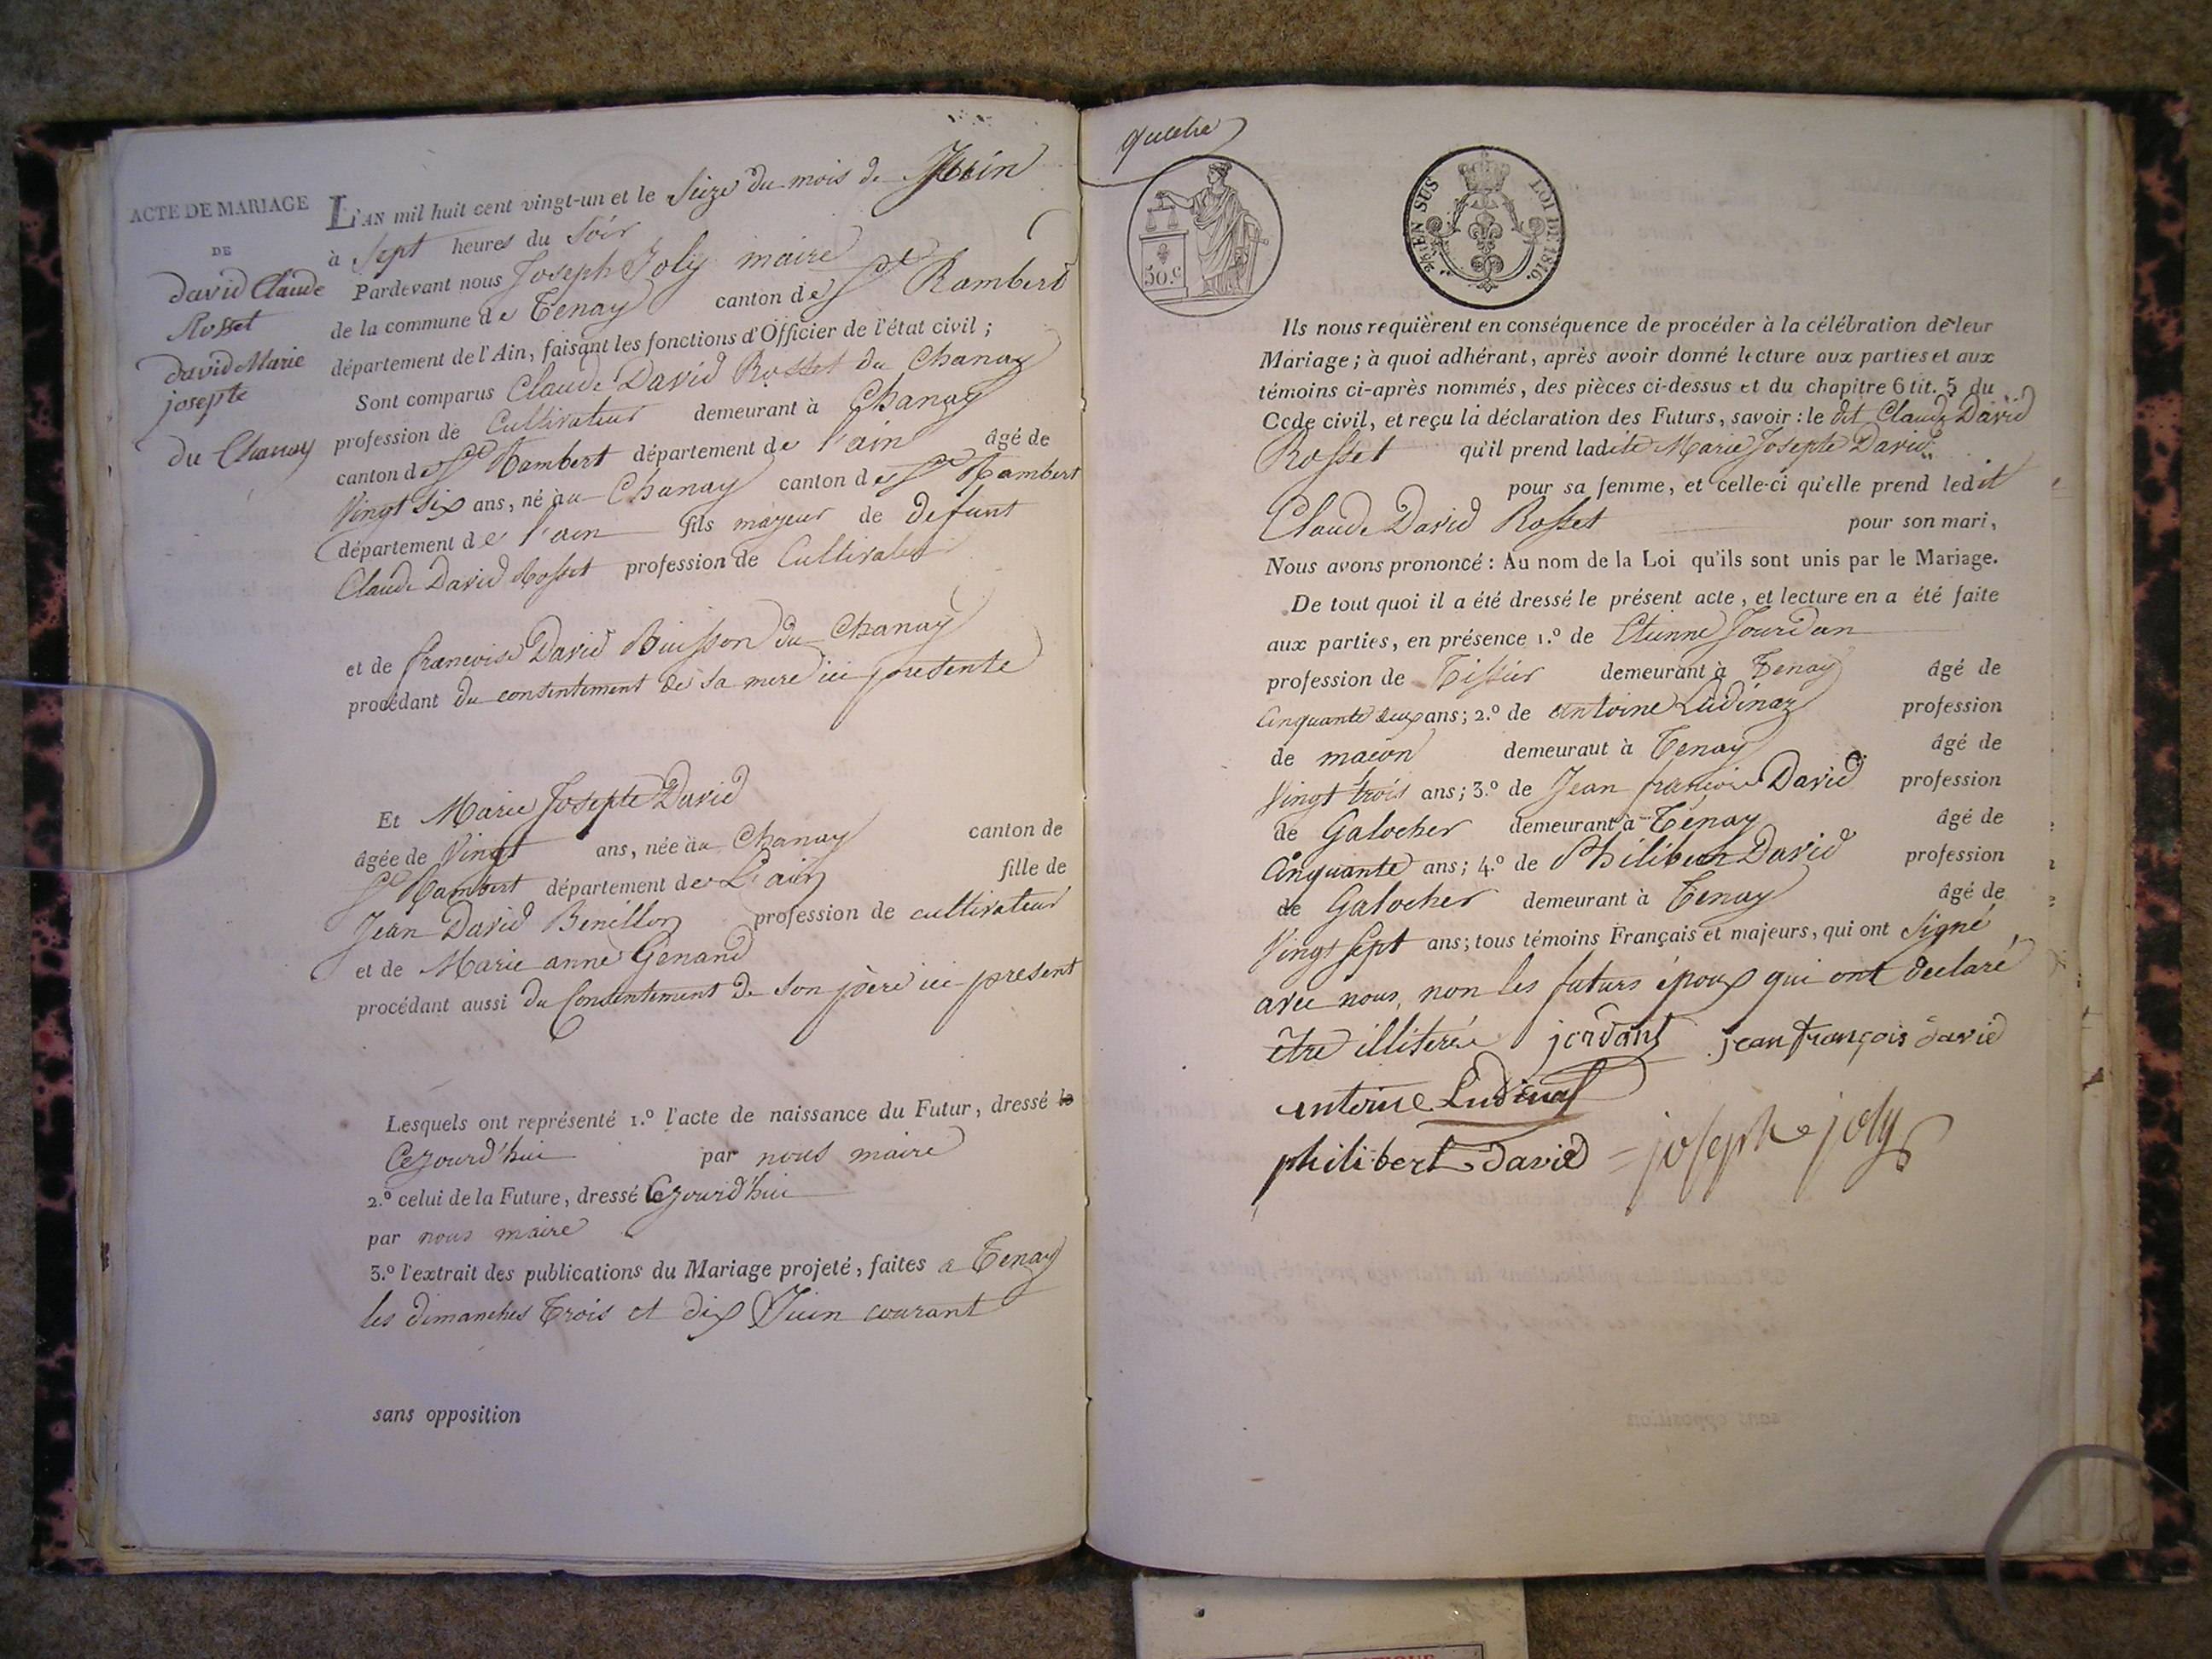 ACTE DE MARIAGE
DE
david Claude
Rosset
david Marie
josepte
du Chanay
L'AN mil huit cent vingt-un et le Seize du mois de Juin
à Sept heures du Soir
Pardevant nous Joseph Joly maire
de la commune de Tenay canton de St Rambert
département de l'Ain, faisant les fonctions d'Officier de l'état civil ;
Sont comparus Claude David Rosset du Chanay
profession de Cultivateur demeurant à Chanay
canton de St Rambert département de l'ain âgé de
Vingt Six ans, né au Chanay canton de St Rambert
département de l'ain fils mayeur de defunt
Claude David Rosset profession de Cultivateur
et de francoise David Buisson du Chanay
procédant du consentement de sa mere ici presente
Et Marie Josepte David
âgée de Vingt ans, née au Chanay canton de
St Rambert département de L'ain fille de
Jean David Benillon profession de cultivateur
et de Marie anne Genand
procédant aussi du Consentement de son père ici present
Lesquels ont représenté 1.º l'acte de naissance du Futur, dressé le
Cejourd'hui par nous maire
2.º celui de la Future, dressé Cejourd'hui
par nous maire
3.º l'extrait des publications du Mariage projeté, faites a Tenay
les dimanches Trois et dix Juin courant
sans opposition
quatre
50.c
2/5 EN SUS
LOI DE 1816.
Ils nous requièrent en conséquence de procéder à la célébration de leur
Mariage ; à quoi adhérant, après avoir donné lecture aux parties et aux
témoins ci-après nommés, des pièces ci-dessus et du chapitre 6 tit. 5 du
Code civil, et reçu la déclaration des Futurs, savoir : le dit Claude David
Rosset qu'il prend ladite Marie Josepte David
pour sa femme, et celle-ci qu'elle prend ledit
Claude David Rosset pour son mari,
Nous avons prononcé : Au nom de la Loi qu'ils sont unis par le Mariage.
De tout quoi il a été dressé le présent acte, et lecture en a été faite
aux parties, en présence 1.º de Etienne Jourdan
profession de Tissier demeurant à Tenay âgé de
Cinquante deux ans ; 2.º de antoine Ludinaz profession
de macon demeuraut à Tenay âgé de
Vingt trois ans ; 3.º de Jean francoise David profession
de Galocher demeurant à Tenay âgé de
Cinquante ans ; 4.º de Philibert David profession
de Galocher demeurant à Tenay âgé de
Vingt Sept ans ; tous témoins Français et majeurs, qui ont Signé
avec nous, non les futurs époux qui ont declaré
être illiterée jordant jean françois david
antoine Ludinas
philibert david joseph joly